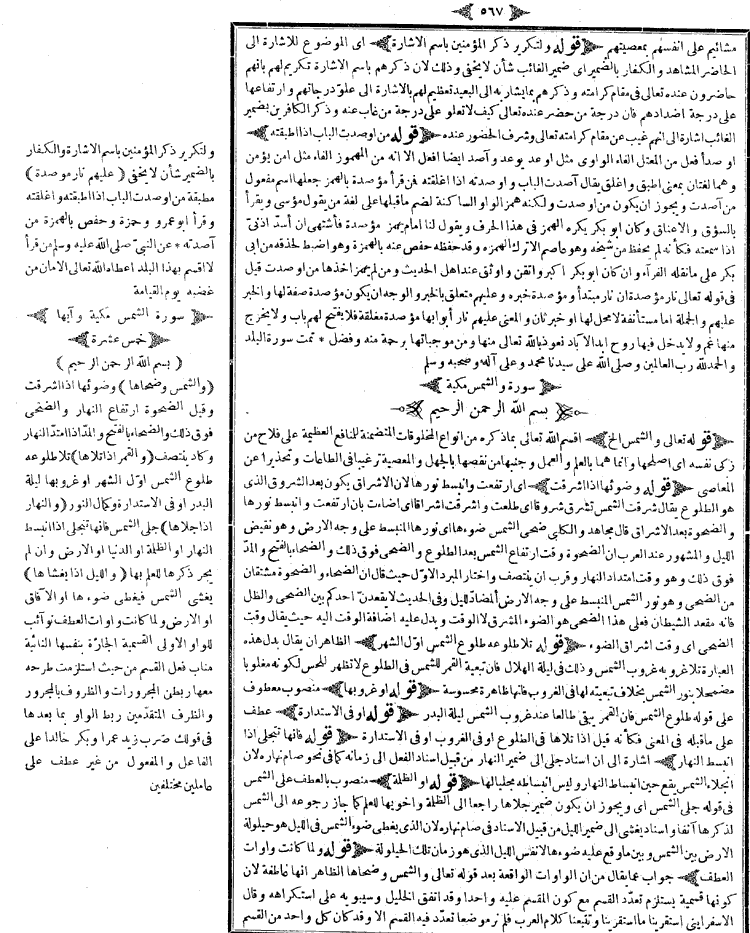 ٥٦٧
مشائيم على انفسهم بمعصيتهم قوله ولتكرير ذكر المؤمنين باسم الاشارة اى الموضوع للاشارة الى
الحاضر المشاهد والكفار بالضمير اى ضمير الغائب شأن لا يخفى وذلك لان ذكرهم باسم الاشارة تكريم لهم بانهم
حاضرون عنده تعالى فى مقام كرامته وذكرهم بما يشار به الى البعيد تعظيم لهم بالاشارة الى علو درجاتهم وارتفاعها
على درجة اضدادهم فان درجة من حضر عنده تعالى كيف لا تعلو على درجة من غاب عنه وذكر الكافرين بضمير
الغائب اشارة الى انهم غيب عن مقام كرامته تعالى وشرف الحضور عنده قوله من اوصدت الباب اذا اطبقته
اوصدأ فعل من المعتل الفاء الواوى مثل اوعد يوعد وآصد ايضا افعل الا انه من المهموز الفاء مثل آمن يؤمن
وهما لغتان بمعنى اطبق واغلق يقال آصدت الباب واوصدته اذا اغلقته فمن قرأ مؤصدة بالهمز جعلها اسم مفعول
من آصدت ويجوز ان يكون من اوصدت ولكنه همز الواو الساكنة لضم ما قبلها على لغة من يقول مؤسى ويقرأ
بالسؤق والاعناق وكان ابو بكر يكره الهمز فى هذا الحرف ويقول لنا امام يهمز مؤصدة فأشتهى ان أسد اذنىّ
اذا سمعته فكأنه لم يحفظ من شيخه وهو عاصم الا ترك الهمزة وقد حفظه حفص عنه بالهمزة وهو اضبط لحذقه من ابى
بكر على ما نقله القرآء وان كان ابو بكر اكبر واتقن واوثق عند اهل الحديث ومن لم يهمز اخذها من اوصدت قيل
فى قوله تعالى نار مؤصدة ان نار مبتدأ ومؤصدة خبره وعليهم متعلق بالخبر والوجه ان يكون مؤصدة صفة لها والخبر
عليهم والجملة اما مستأنفة لا محل لها او خبر ثان والمعنى عليهم نار أبوابها مؤصدة مغلقة فلا يفتح لهم باب ولا يخرج
منها غم ولا يدخل فيها روح ابد الآباد نعوذ بالله تعالى منها ومن موجباتها برحمة منه وفضل * تمت سورة البلد
والحمد لله رب العالمين وصلى الله على سيدنا محمد وعلى آله وصحبه وسلم
سورة والشمس مكية
بسم الله الرحمن الرحيم
قوله تعالى والشمس الخ اقسم الله تعالى بما ذكره من انواع المخلوقات المتضمنة للمنافع العظيمة على فلاح من
زكى نفسه اى اصلحها وانماها بالعلم والعمل وجنبها من نقصها بالجهل والمعصية ترغيبا فى الطاعات وتحذيرا عن
المعاصى قوله وضوئها اذا اشرقت اى ارتفعت وانبسط نورها لان الاشراق يكون بعد الشروق الذى
هو الطلوع يقال شرقت الشمس تشرق شروقا اى طلعت واشرقت اشراقا اى اضاءت بان ارتفعت وانبسط نورها
والضحوة بعد الاشراق قال مجاهد والكلبى ضحى الشمس ضوءها اى نورها المنبسط على وجه الارض وهو نقيض
الليل والمشهور عند العرب ان الضحوة وقت ارتفاع الشمس بعد الطلوع والضحى فوق ذلك والضحاء بالفتح والمدّ
فوق ذلك وهو وقت امتداد النهار وقرب ان ينتصف واختار المبرد الاوّل حيث قال ان الضحاء والضحوة مشتقان
من الضحى وهو نور الشمس المنبسط على وجه الارض المضادّ لليل وفى الحديث لا يقعدنّ احدكم بين الضحى والظل
فانه مقعد الشيطان فعلى هذا الضحى هو الضوء المشرق لا الوقت ويدل عليه اضافة الوقت اليه حيث يقال وقت
الضحى اى وقت اشراق الضوء قوله تلا طلوعه طلوع الشمس اوّل الشهر الظاهر ان يقال بدل هذه
العبارة تلا غروبه غروب الشمس وذلك فى ليلة الهلال فان تبعية القمر للشمس فى الطلوع لا تظهر للحس لكونه مغلوبا
مضمحلا بنور الشمس بخلاف تبعيته لها فى الغروب فانها ظاهرة محسوسة قوله او غروبها منصوب معطوف
على قوله طلوع الشمس فان القمر يبقى طالعا عند غروب الشمس ليلة البدر قوله او فى الاستدارة عطف
على ما قبله فى المعنى فكأنه قيل اذا تلاها فى الطلوع او فى الغروب او فى الاستدارة قوله فانها تتجلى اذا
انبسط النهار اشارة الى ان اسناد جلى الى ضمير النهار من قبيل اسناد الفعل الى زمانه كما فى نحو صام نهاره لان
انجلاء الشمس يقع حين انبساط النهار وليس انبساطه مجليا لها قوله او الظلمة منصوب بالعطف على الشمس
فى قوله جلى الشمس اى ويجوز ان يكون ضمير جلاها راجعا الى الظلمة واخويها للعلم كما جاز رجوعه الى الشمس
لذكرها آنفا واسناد يغشى الى ضمير الليل من قبيل الاسناد فى صام نهاره لان الذى يغطى ضوء الشمس فى الليل هو حيلولة
الارض بين الشمس وبين ما وقع عليه ضوءها لا نفس الليل الذى هو زمان تلك الحيلولة قوله ولما كانت واوات
العطف جواب عما يقال من ان الواوات الواقعة بعد قوله تعالى والشمس وضحاها الظاهر انها عاطفة لان
كونها قسمية يستلزم تعدّد القسم مع كون المقسم عليه واحدا وقد اتفق الخليل وسيبويه على استكراهه وقال
الاسفراينى استقرينا ما استقرينا وتتبعنا كلام العرب فلم نر موضعا تعدد فيه القسم الا وقد كان كل واحد من القسم
ولتكرير ذكر المؤمنين باسم الاشارة والكفار
بالضمير شأن لا يخفى (عليهم نار موصدة)
مطبقة من اوصدت الباب اذا اطبقته واغلقته
وقرأ ابو عمرو وحمزة وحفص بالهمزة من
آصدته * عن النبىّ صلى الله عليه وسلم من قرأ
لا اقسم بهذا البلد اعطاه الله تعالى الامان من
غضبه يوم القيامة
سورة الشمس مكية وآيها
خمس عشرة
(بسم الله الرحمن الرحيم)
(والشمس وضحاها) وضوئها اذا اشرقت
وقيل الضحوة ارتفاع النهار والضحى
فوق ذلك والضحاء بالفتح والمدّ اذا امتدّ النهار
وكاد ينتصف (والقمر اذا تلاها) تلا طلوعه
طلوع الشمس اوّل الشهر او غروبها ليلة
البدر او فى الاستدارة وكمال النور (والنهار
اذا جلاها) جلى الشمس فانها تتجلى اذا انبسط
النهار او الظلمة او الدنيا او الارض وان لم
يجر ذكرها للعلم بها (والليل اذا يغشاها)
يغشى الشمس فيغطى ضوءها او الآفاق
او الارض ولما كانت واوات العطف نوآئب
للواو الاولى القسمية الجارّة بنفسها النائبة
مناب فعل القسم من حيث استلزمت طرحه
معها ربطن المجرورات والظروف بالمجرور
والظرف المتقدّمين ربط الواو بما بعدها
فى قولك ضرب زيد عمرا وبكر خالدا على
الفاعل والمفعول من غير عطف على
عاملين مختلفين